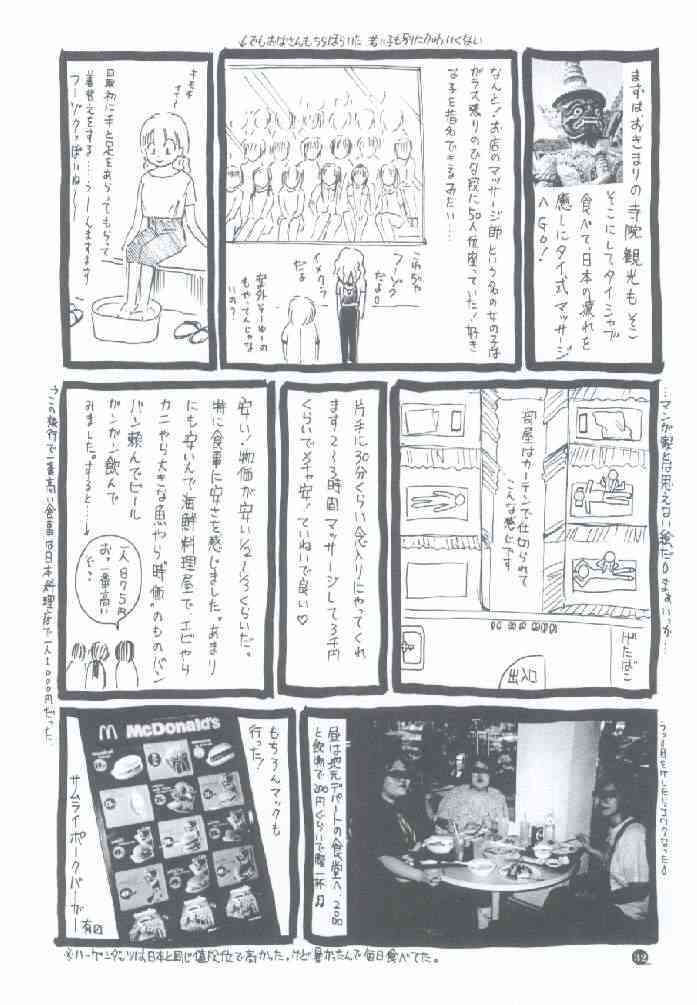 まずはおきまりの寺院観光もそこ
そこにしてタイシャブ
食べて、日本の疲れを
癒しにタイ式マッサージ
へGO!
なんと!お店のマッサージ師という名の女の子は
ガラス張りのひな段に50人位座っていた!好き
な子を指名できるみたい…
これじゃ
フーゾク
だよ。
イメクラ
だる
案外そーゆーの
もやってんじゃな
いの?
最初に手と足をあらってもらって
着替えをする…うーんますます
フーゾクっぽいね〜
…マンガ家とは思えない絵だ。まぁいっか…
部屋はカーテンで仕切られて
こんな感じです
げたばこ
出入口
片手に30分くらい念入りにやってくれ
ます。2〜3時間マッサージして3千円
くらいでメチャ安!ていねいで良い♡
安い!物価が安い1/2〜1/3くらいだ。
特に食事に安さを感じました。あまり
にも安いんで海鮮料理屋で、エビやら
カニやら大きな魚やら"時価"のものバン
バン頼んでビール
ガンガン飲んで
みました。すると…
一人875円
お。一番高い
ぞっ
この旅行で一番高い食事は日本料理店で一人1000円だった。
昼は地元デパートの食堂へ。200
と飲物で200円ぐらいで腹一杯。
McDonald's
もちろんマックも
行った!
サムライポークバーガー
有
※ハーゲンダッツは、日本と同じ値段位で高かった。けど暑かったんで毎日食べてた。
42